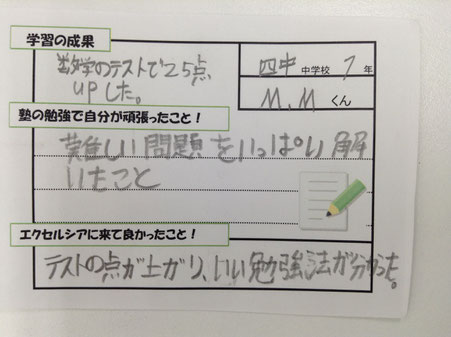 学習の成果
数学のテストで25点
UPした。
四中 中学校 1 年
M.M くん
塾の勉強で自分が頑張ったこと！
難しい問題をいっぱい解
いたこと
エクセルシアに来て良かったこと！
テストの点が上がり、いい勉強法が分かった。